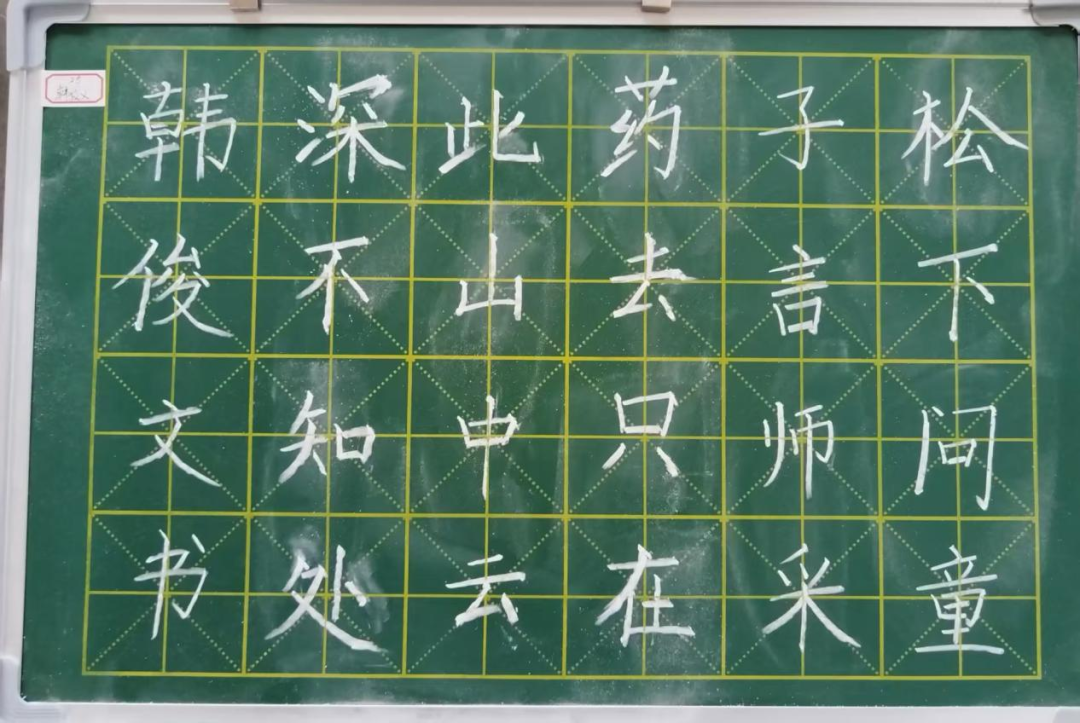 松下问童
子言师采
药去只在
此山中云
深不知处
韩俊文书